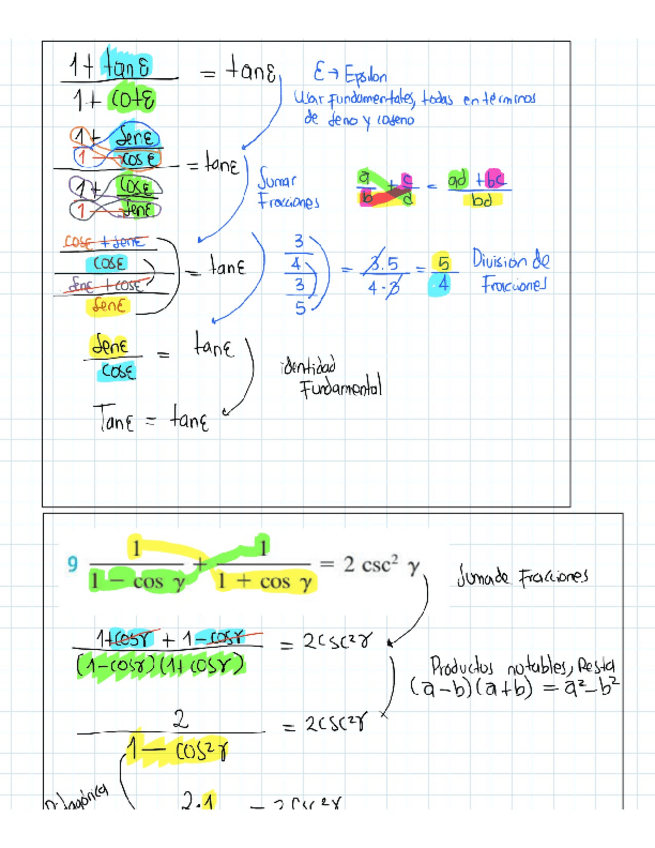 1 + tan ε / 1 + cot ε = tan ε
ε → Epsilon
Usar fundamentales, todas en términos
de seno y coseno
1 + sen ε / 1 cos ε
1 + cos ε / 1 sen ε = tan ε
Sumar
Fracciones
a/b + c/d = ad + bc / bd
cos ε + sen ε / cos ε
sen ε + cos ε / sen ε = tan ε
3/4 / 3/5 = 3.5 / 4.3 = 5/4
División de
Fracciones
sen ε / cos ε = tan ε
identidad
Fundamental
Tan ε = tan ε
9 1 / 1 − cos γ + 1 / 1 + cos γ = 2 csc² γ
Suma de Fracciones
1+cosγ + 1−cosγ / (1−cosγ)(1+cosγ) = 2csc²γ
Productos notables, Resta
(a−b)(a+b) = a²−b²
2 / 1 − cos²γ = 2csc²γ
2.1 = 2csc²γ